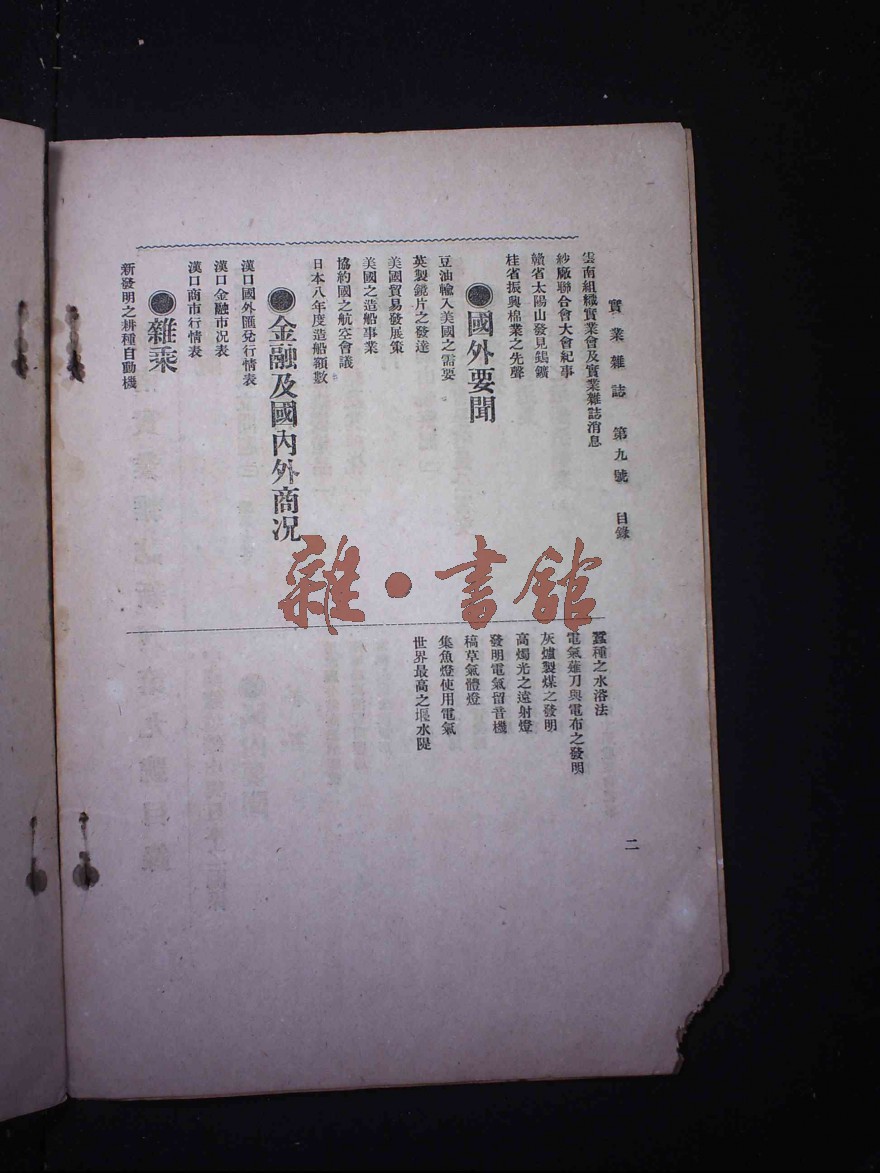 實業雜誌 第九號 目錄
二
雲南組織實業會及實業雜誌消息
紗廠聯合會大會紀事
贛省太陽山發見錫鑛
桂省振興棉業之先聲
●國外要聞
豆油輸入美國之需要
英製鏡片之發達
美國貿易發展策
美國之造船事業
協約國之航空會議
日本八年度造船額數
●金融及國內外商况
漢口國外匯兌行情表
漢口金融市况表
漢口商市行情表
●雜乘
新發明之耕種自動機
蠶種之水溶法
電氣薙刀與電布之發明
灰爐製煤之發明
高燭光之遠射燈
發明電氣留音機
稿草氣體燈
集魚燈使用電氣
世界最高之堰水隄
雜·書館